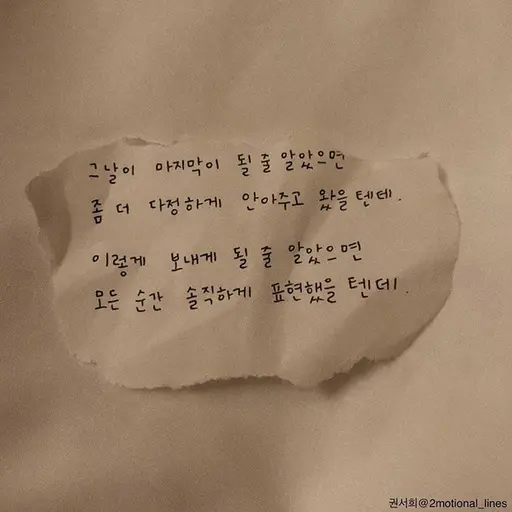 그날이 마지막이 될 줄 알았으면
좀 더 다정하게 안아주고 왔을 텐데.
이렇게 보내게 될 줄 알았으면
모든 순간 솔직하게 표현했을 텐데.
권서희@2motional_lines